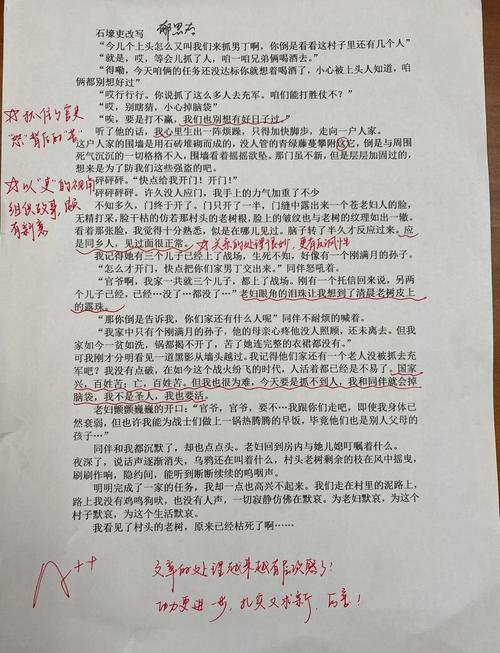 石壕吏改写
“今儿个上头怎么又叫我们来抓男丁啊，你倒是看看这村子里还有几个人”
“就是，哎，等会儿抓了人，咱一咱兄弟俩喝酒去。”
“得嘞，今天咱俩的任务还没达标你就想着喝酒了，小心被上头人知道，咱
俩都别想好过”
“哎行行行。你说抓了这么多人去充军。咱们能打胜仗不？”
“哎，别瞎猜，小心掉脑袋”
“唉，要是打不赢，我们也别想有好日子过。”
听了他的话，我心里生出一阵烦躁，只得加快脚步，走向一户人家。
这户人家的围墙是用石砖堆砌而成的，没人管的青绿藤蔓攀附这它，倒是与周围
死气沉沉的一切格格不入，围墙看着摇摇欲坠。那门虽不新，但是层层加固过的，
想来是为了防我们这些强盗的吧。
砰砰砰。“快点给我开门！开门！”
砰砰砰砰。许久没人应门，我手上的力气加重了不少
不知多久，门终于开了。门只开了一半，门缝中露出来一个苍老妇人的脸，
无精打采，脸干枯的仿若那村头的老树根，脸上的皱纹也与老树的纹理如出一辙。
看着那张脸，我觉得十分熟悉，似是在哪儿见过。脑子转了半久才反应过来。应
是同乡人，见过面很正常。
☆关系的处理很妙，更有反讽性
我记得她有三个儿子已经上了战场，生死不知，好像有一个刚满月的孙子。
“怎么才开门，快点把你们家男丁交出来。”同伴怒吼着。
“官爷啊，我家一共就三个儿子，都上了战场。刚有一个托信回来说，另两
个儿子已经，已经⋯没了⋯都没了⋯”老妇眼角的泪珠让我想到了清晨老树皮上
的露珠。
“那你倒是告诉我，你们家还有什么人呢”同伴不耐烦的喊着。
“我家中只有个刚满月的孙子，他的母亲心疼他没人照顾，还未离去。但我
家如今一贫如洗，锅都揭不开，苦了她连完整的衣裙都没有。”
可我刚才分明看见一道黑影从墙头越过。我记得他们家还有一个老人没被抓去充
军吧？我没有点破，在如今这个战火纷飞的时代，人活着都已经是不易了。国家
兴，百姓苦；亡，百姓苦。但我也很为难，今天要是抓不到人，我和同伴就会掉
脑袋，我不是圣人，我也要活。
老妇颤颤巍巍的开口：“官爷，官爷，要不⋯我跟你们走吧，即使我身体已
然衰弱，但也许我能为战士们做上一锅热腾腾的早饭，毕竟他们也是别人父母的
孩子⋯”
同伴和我都沉默了，却也点点头。老妇回到房内与她儿媳叮嘱着什么。
夜深了，说话声逐渐消失，乌鸦还在叫着什么，村头老树剩余的枝在风中摇曳，
刷刷作响，隐约间，能听到断断续续的呜咽声。
明明完成了一家的任务，我却一点也高兴不起来。我们走在村里的泥路上，
路上我没有鸡鸣狗吠，也没有人声，一切寂静仿佛在默哀。为老妇默哀，为这个
村子默哀，为这个生活默哀。
我看见了村头的老树，原来已经枯死了啊⋯⋯
☆抓住了官吏
“怒”背后的“苦”
☆以“吏”的视角
组织故事，颇
有新意
A++
文章的处理越来越有层次感了！
功力更进一步，扎实又求新，